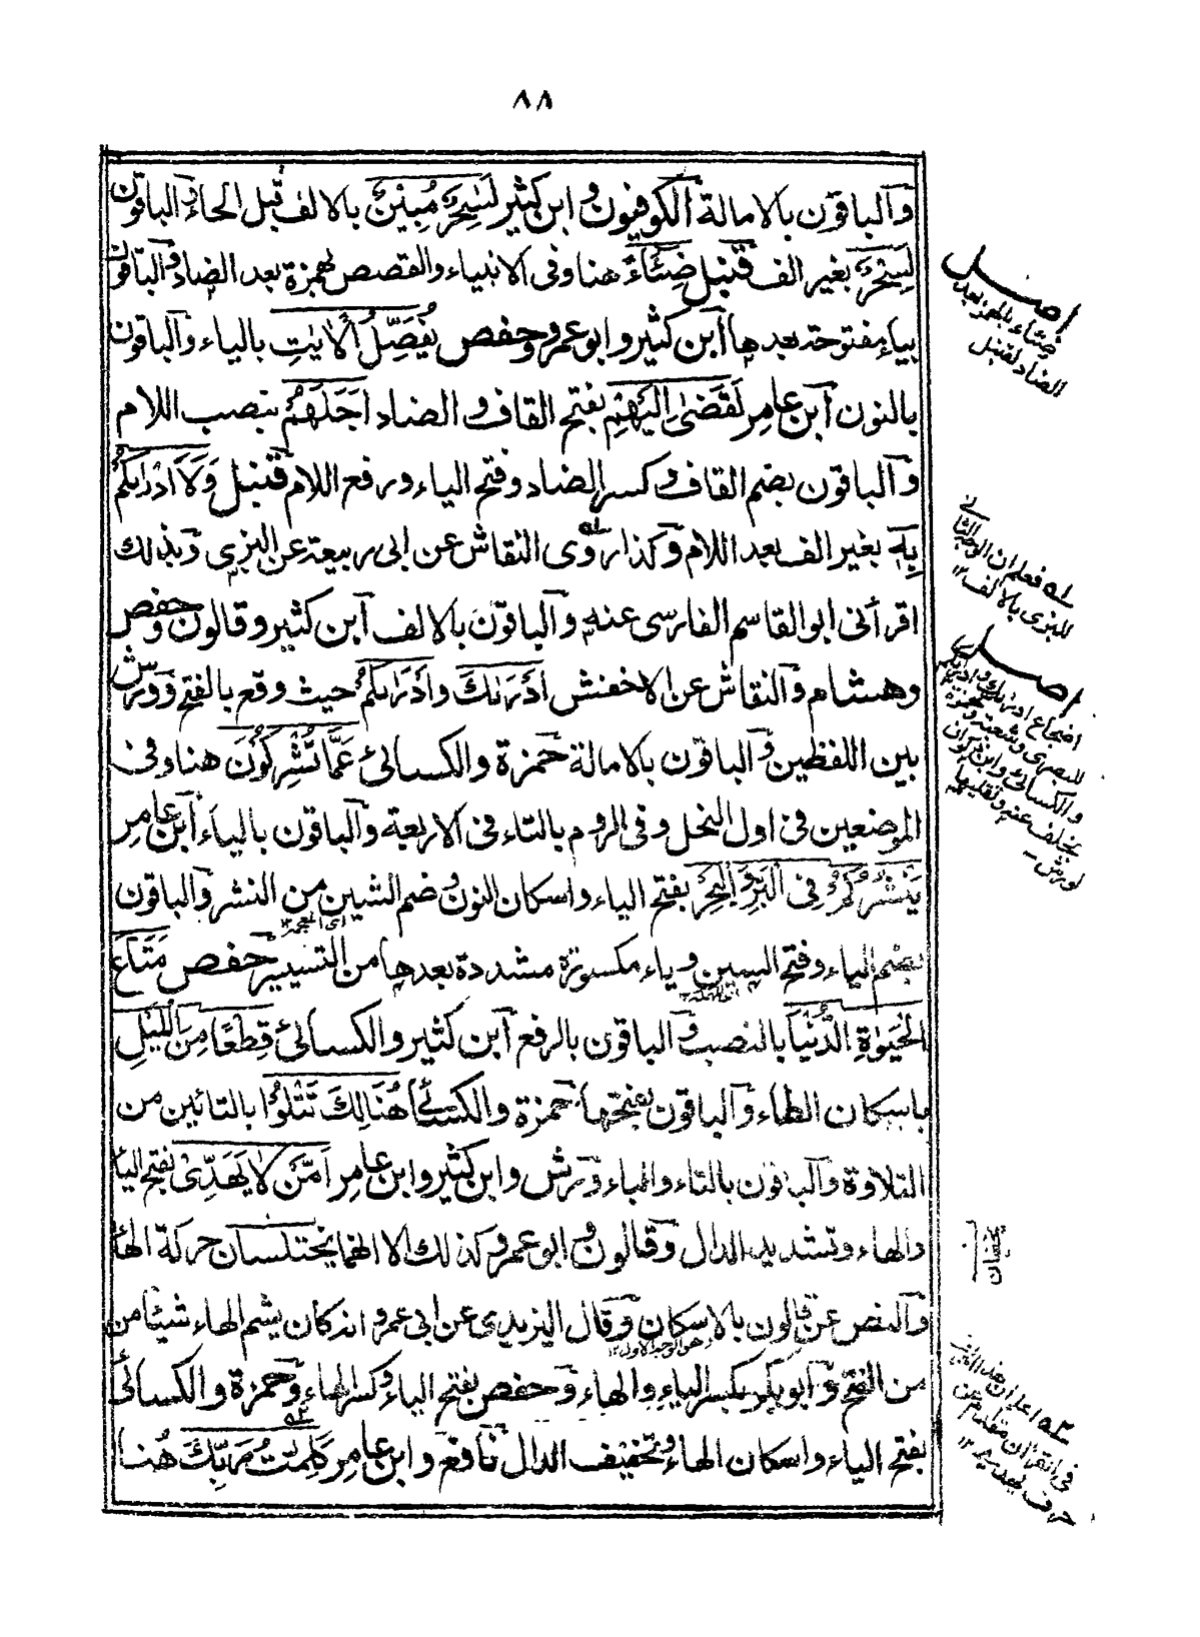 ٨٨
وآلباقون بالامالة آلكوفيون وابن كثير لَسٰحِرٌ مُبِيْنٌ بالالف قبل الحاء وآلباقون
لَسِحْرٌ بغير الف قنبل ضِئَآءً هنا وفى الانبياء والقصص بهمزة بعد الضاد وآلباقون
بياء مفتوحة بعدها آبن كثير وابو عمرو وحفص يُفَصِّلُ الْاٰيٰتِ بالياء وآلباقون
بالنون آبن عامر لَقَضٰى اِلَيْهِمْ بفتح القاف والضاد اَجَلَهُمْ بنصب اللام
وآلباقون بضم القاف وكسر الضاد وفتح الياء ورفع اللام قنبل وَلَاَ اَدْرٰىكُمْ
بِهٖ بغير الف بعد اللام وكذا روى النقاش عن ابى ربيعة عن البزى وبذلك
اقرأنى ابو القاسم الفارسى عنه وآلباقون بالالف آبن كثير وقالون وحفص
وهشام وآلنقاش عن الاخفش اَدْرٰىكَ وَاَدْرٰىكُمْ حيث وقع بالفتح وورش
بين اللفظين وآلباقون بالامالة حمزة والكسائى عَمَّا تُشْرِكُوْنَ هنا وفى
الموضعين فى اول النحل وفى الروم بالتاء فى الاربعة وآلباقون بالياء آبن عامر
يَنْشُرُكُمْ فِى الْبَرِّ وَالْبَحْرِ بفتح الياء واسكان النون وضم الشين من النشر وآلباقون
بضم الياء وفتح السين وياء مكسورة مشددة بعدها من التسيير حفص مَتَاعَ
الْحَيٰوةِ الدُّنْيَا بالنصب وآلباقون بالرفع آبن كثير والكسائى قِطْعًا مِنَ اللَّيْلِ
باسكان الطاء وآلباقون بفتحها حمزة والكسائى هُنَالِكَ تَتْلُوْا بالتائين من
التلاوة وآلباقون بالتاء والباء ورش وابن كثير وابن عامر اَمَّنْ لَا يَهَدِّىْ بفتح اليا
والهاء وتشديد الدال وقالون وابو عمرو كذلك الا انهما يختلسان حركة الها
وآلنص عن قالون بالاسكان وقال اليزيدى عن ابى عمرو انه كان يشم الهاء شيئا من
من الفتح وآبو بكر بكسر الياء والهاء وحفص بفتح الياء وكسر الهاء وحمزة والكسائى
بفتح الياء واسكان الهاء وتخفيف الدال نافع وابن عامر كَلِمٰتُ رَبِّكَ هُنا
اصل
ضئاء بالهمز بعد
الضاد لقنبل
فعلم ان الوجه الثانى
للبزى بالالف ١٢
اصل
اضجاع
للبصرى وشعبة وحمزة
والكسائى وابن ذكوان
بخلف عنه وتقليلها
لورش